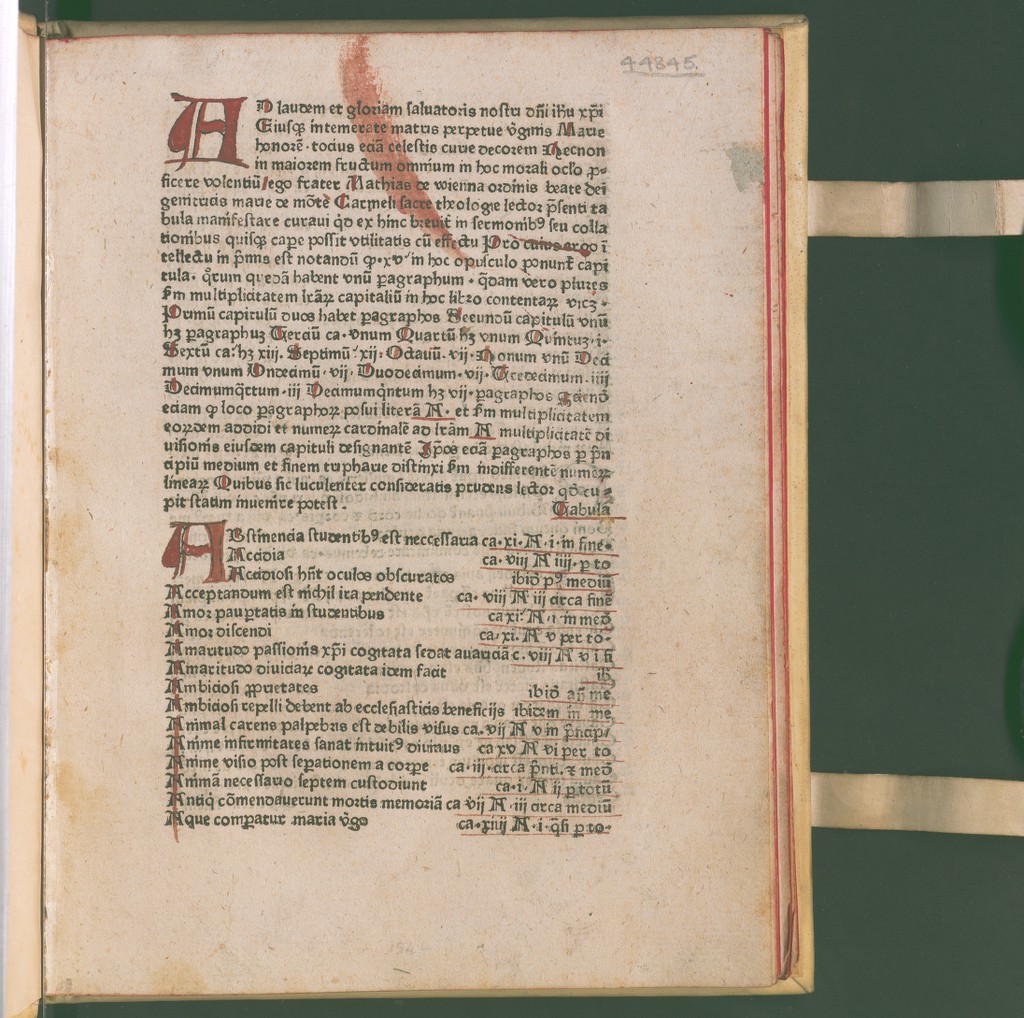 44845.
AD laudem et gloriam saluatoris nostri dñi ihu xp̃i
Eiusqꝫ intemerate matris perpetue v̑ginis Marie
honorẽ · tocius eciã celestis curie decorem Necnon
in maiorem fructum omnium in hoc morali ocło p̲-
ficere volentiũ/ego frater Mathias de wienna ordinis beate dei
genitricis marie de mõte Carmeli sacre theologie lector p̃senti ta
bula manifestare curaui qd̃ ex hinc breuit̃ in sermonibꝰ seu colla
tionibus quisqꝫ cape possit vtilitatis cũ effectu Pro cuius ergo ĩ
tellectu in p̃mis est notandũ ꝙ·xv· in hoc opusculo ponunt̃ capi
tula· qͦrum quedã habent vnũ ꝑagraphum · qͣdam vero plures
fm̃ multiplicitatem lrãꝝ capitaliũ in hoc libro contentaꝝ vicꝫ ·
Primũ capitulũ duos habet ꝑagraphos Secundũ capitulũ vnũ
hꝫ ꝑagraphuꝫ Terciũ ca· vnum Quartũ hꝫ vnum Quintuꝫ·i·
Sextũ ca· hꝫ xiij. Septimũ·xij· Octauũ·vij· Nonum vnũ Deci
mum vnum Vndecimũ·vij· Duodecimum·vij· Tredecimum·iiij
Decimumqͣrtum·iij Decimumqͥntum hꝫ vij·ꝑagraphos Sciendũ
eciam ꝙ loco ꝑagraphoꝝ posui literã A· et fm̃ multiplicitatem
eorꝝdem addidi et numeꝝ cardinalẽ ad lrãm A multiplicitatẽ di
uisionis eiusdem capituli designantẽ Ip̃os eciã ꝑagraphos ꝑ p̃n
cipiũ medium et finem tripharie distinxi fm̃ indifferentẽ numeꝝ
lineaꝝ Quibus sic luculenter consideratis prudens lector qd̃ cu-
pit statim inuenire potest·
Tabula
ABstinencia studentibꝰ est neccessaria ca·xi·A·i·in fine·
Accidia ca· viij A iiij·ꝑ to
Accidiosi hñt oculos obscuratos ibid̃ pꝰ mediũ
Acceptandum est nichil ira pendente ca· viij A iij circa finẽ
Amor pauꝑtatis in studentibus ca xi· A·i·in med̃
Amor discendi ca·xi· A v per to·
Amaritudo passionis xp̃i cogitata sedat auariciã c. viij A v i fi
Amaritudo diuiciaꝝ cogitata idem facit ib̃
Ambiciosi ꝓprietates ibid̃ añ me
Ambiciosi repelli debent ab ecclesiasticis beneficijs ibidem in me
Animal carens palpebris est debilis visus ca. vij A v in p̃ncip/
Anime infirmitates sanat intuitꝰ diuinus ca xv A vi per to
Anime visio post seꝑationem a corpe ca·iij·circa p̃nti· ⁊ med̃
Animã necessario septem custodiunt ca·i·A ij ꝑ totũ
Antiqͥ cõmendauerunt mortis memoriã ca vij A·iij circa mediũ
Aque comparatur maria v̑go ca·xiiij A·i·qͣsi ꝑ to·